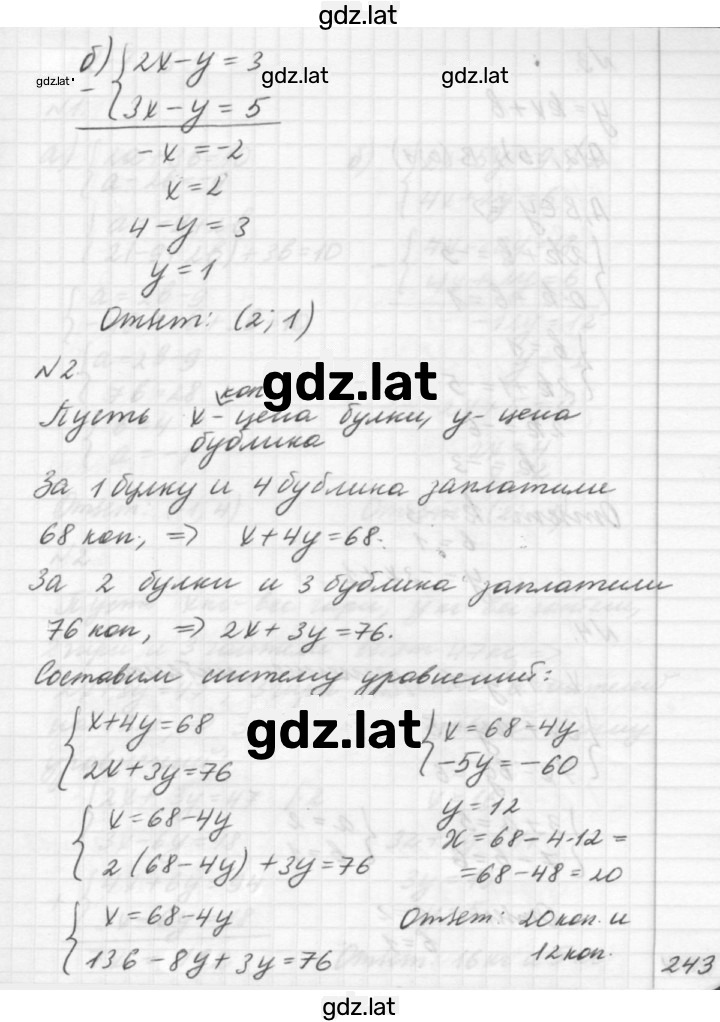 gdz.lat
б) {2x - y = 3
gdz.lat gdz.lat gdz.lat
- {3x - y = 5
-x = -2
x = 2
4 - y = 3
y = 1
Ответ: (2; 1)
№2
gdz.lat
коп
Пусть x - цена булки, y - цена
бублика
За 1 булку и 4 бублика заплатили
68 коп., => x + 4y = 68.
За 2 булки и 3 бублика заплатили
76 коп, => 2x + 3y = 76.
Составим систему уравнений:
gdz.lat
{x + 4y = 68
{2x + 3y = 76
{x = 68 - 4y
{2(68 - 4y) + 3y = 76
{x = 68 - 4y
{136 - 8y + 3y = 76
{x = 68 - 4y
{-5y = -60
y = 12
x = 68 - 4·12 =
= 68 - 48 = 20
Ответ: 20 коп. и
12 коп.
243
gdz.lat